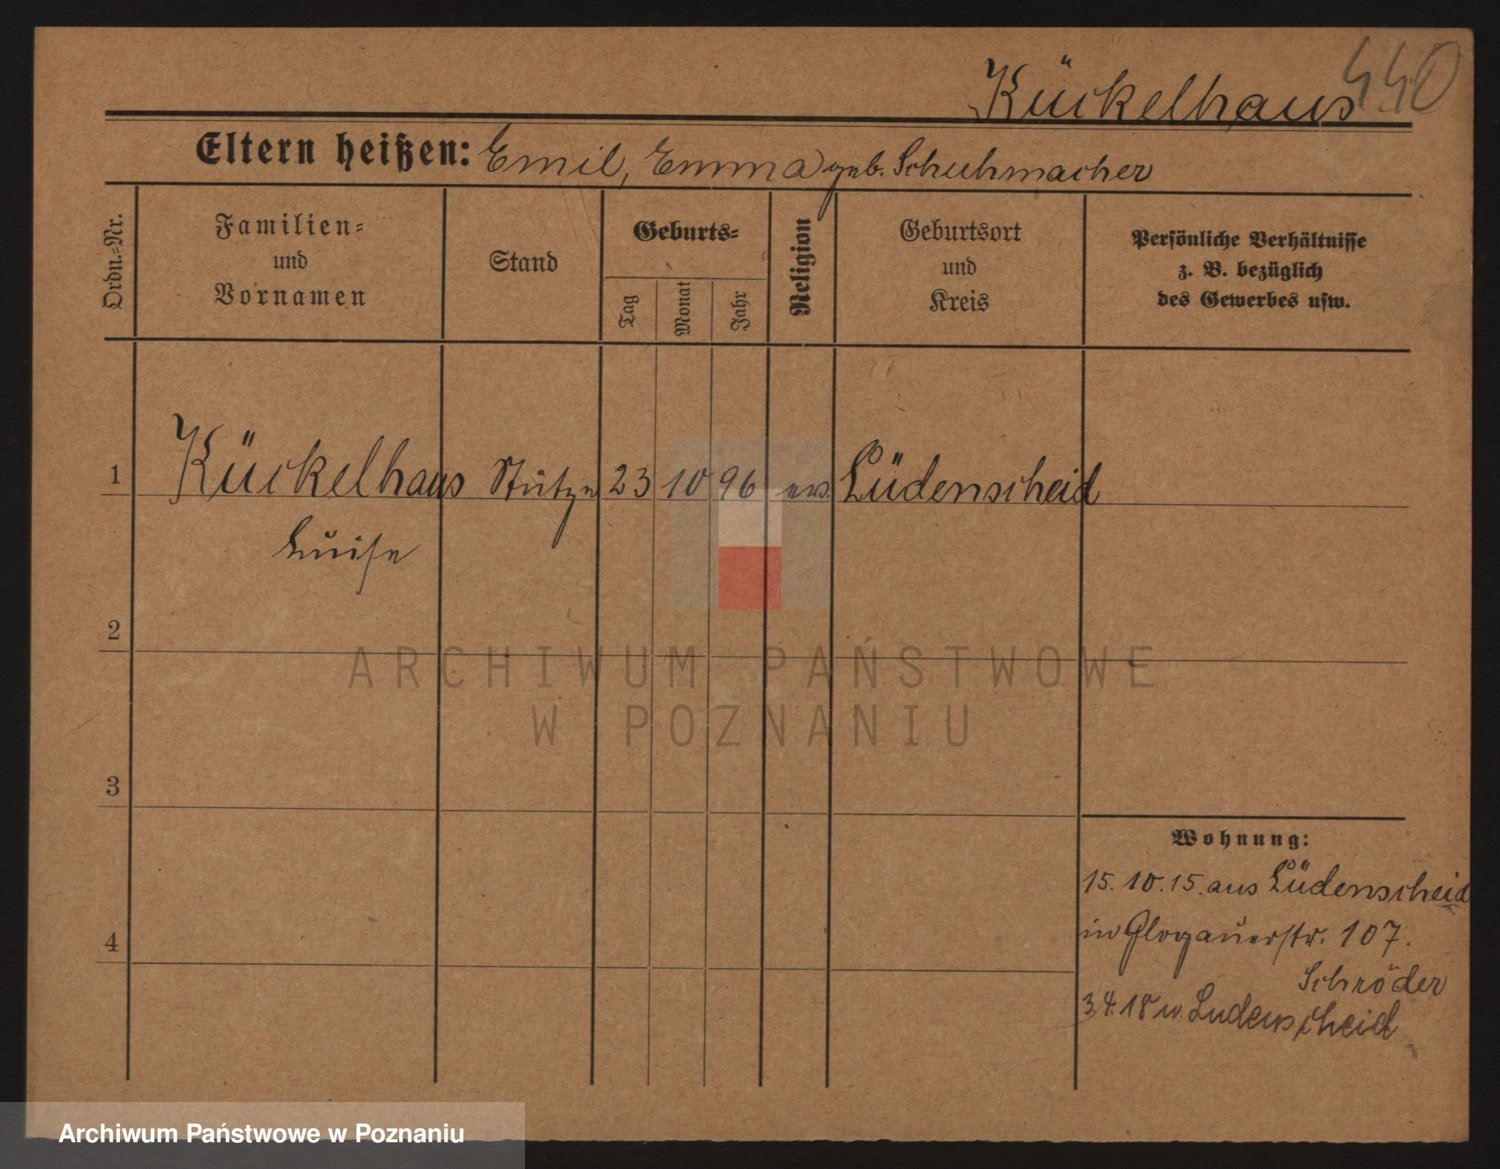 440
Kückelhaus
Eltern heißen: Emil, Emma geb. Schuhmacher
Ordn.-Nr.
Familien-
und
Vornamen
Stand
Geburts-
Tag
Monat
Jahr
Religion
Geburtsort
und
Kreis
Persönliche Verhältnisse
z. B. bezüglich
des Gewerbes usw.
1 Kückelhaus Stütze 23 10 96 ev. Lüdenscheid
Luise
2
ARCHIWUM PAŃSTWOWE
W POZNANIU
3
Wohnung:
15.10.15. aus Lüdenscheid
in Glogauerstr. 107.
4
Schröder
3.4.18 n. Ludenscheid
Archiwum Państwowe w Poznaniu